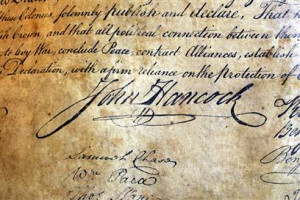 these Colonies, solemnly publish and declare, That
Crown, and that all political connection between them
levy War, conclude Peace, contract Alliances, establish
Declaration, with a firm reliance on the protection of
John Hancock
Samuel Chase
Wm Paca
Thos